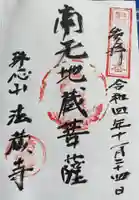 奉拝
令和四年十一月二十四日
南无地蔵菩薩
法蔵寺